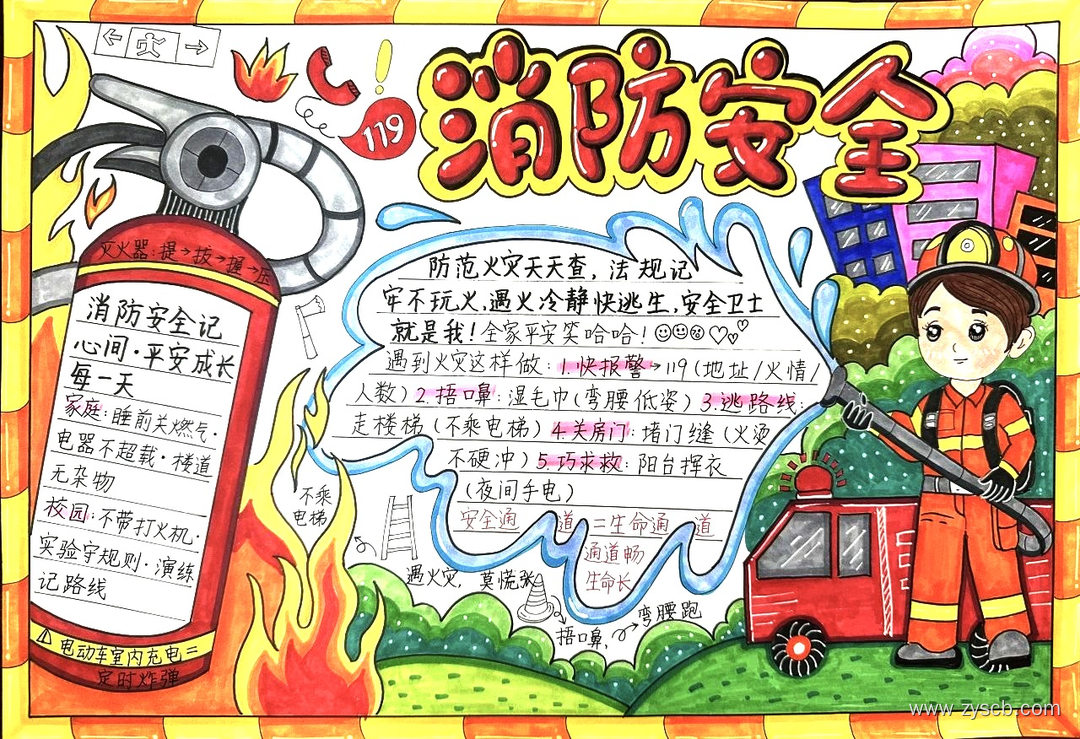 消防安全
119
灭火器:提→拔→握→压
消防安全记
心间·平安成长
每一天
家庭:睡前关燃气·
电器不超载·楼道
无杂物
校园:不带打火机·
实验守规则·演练
记路线
电动车室内充电=
定时炸弹
防范火灾天天查,法规记
牢不玩火,遇火冷静快逃生,安全卫士
就是我!全家平安笑哈哈!
遇到火灾这样做:1.快报警→119(地址/火情/
人数)2.捂口鼻:湿毛巾(弯腰低姿)3.逃路线:
走楼梯(不乘电梯)4.关房门:堵门缝(火烫
不硬冲)5.巧求救:阳台挥衣
(夜间手电)
安全通道=生命通道
通道畅
生命长
不乘
电梯
遇火灾,莫慌张
捂口鼻,
弯腰跑
www.zyscb.com